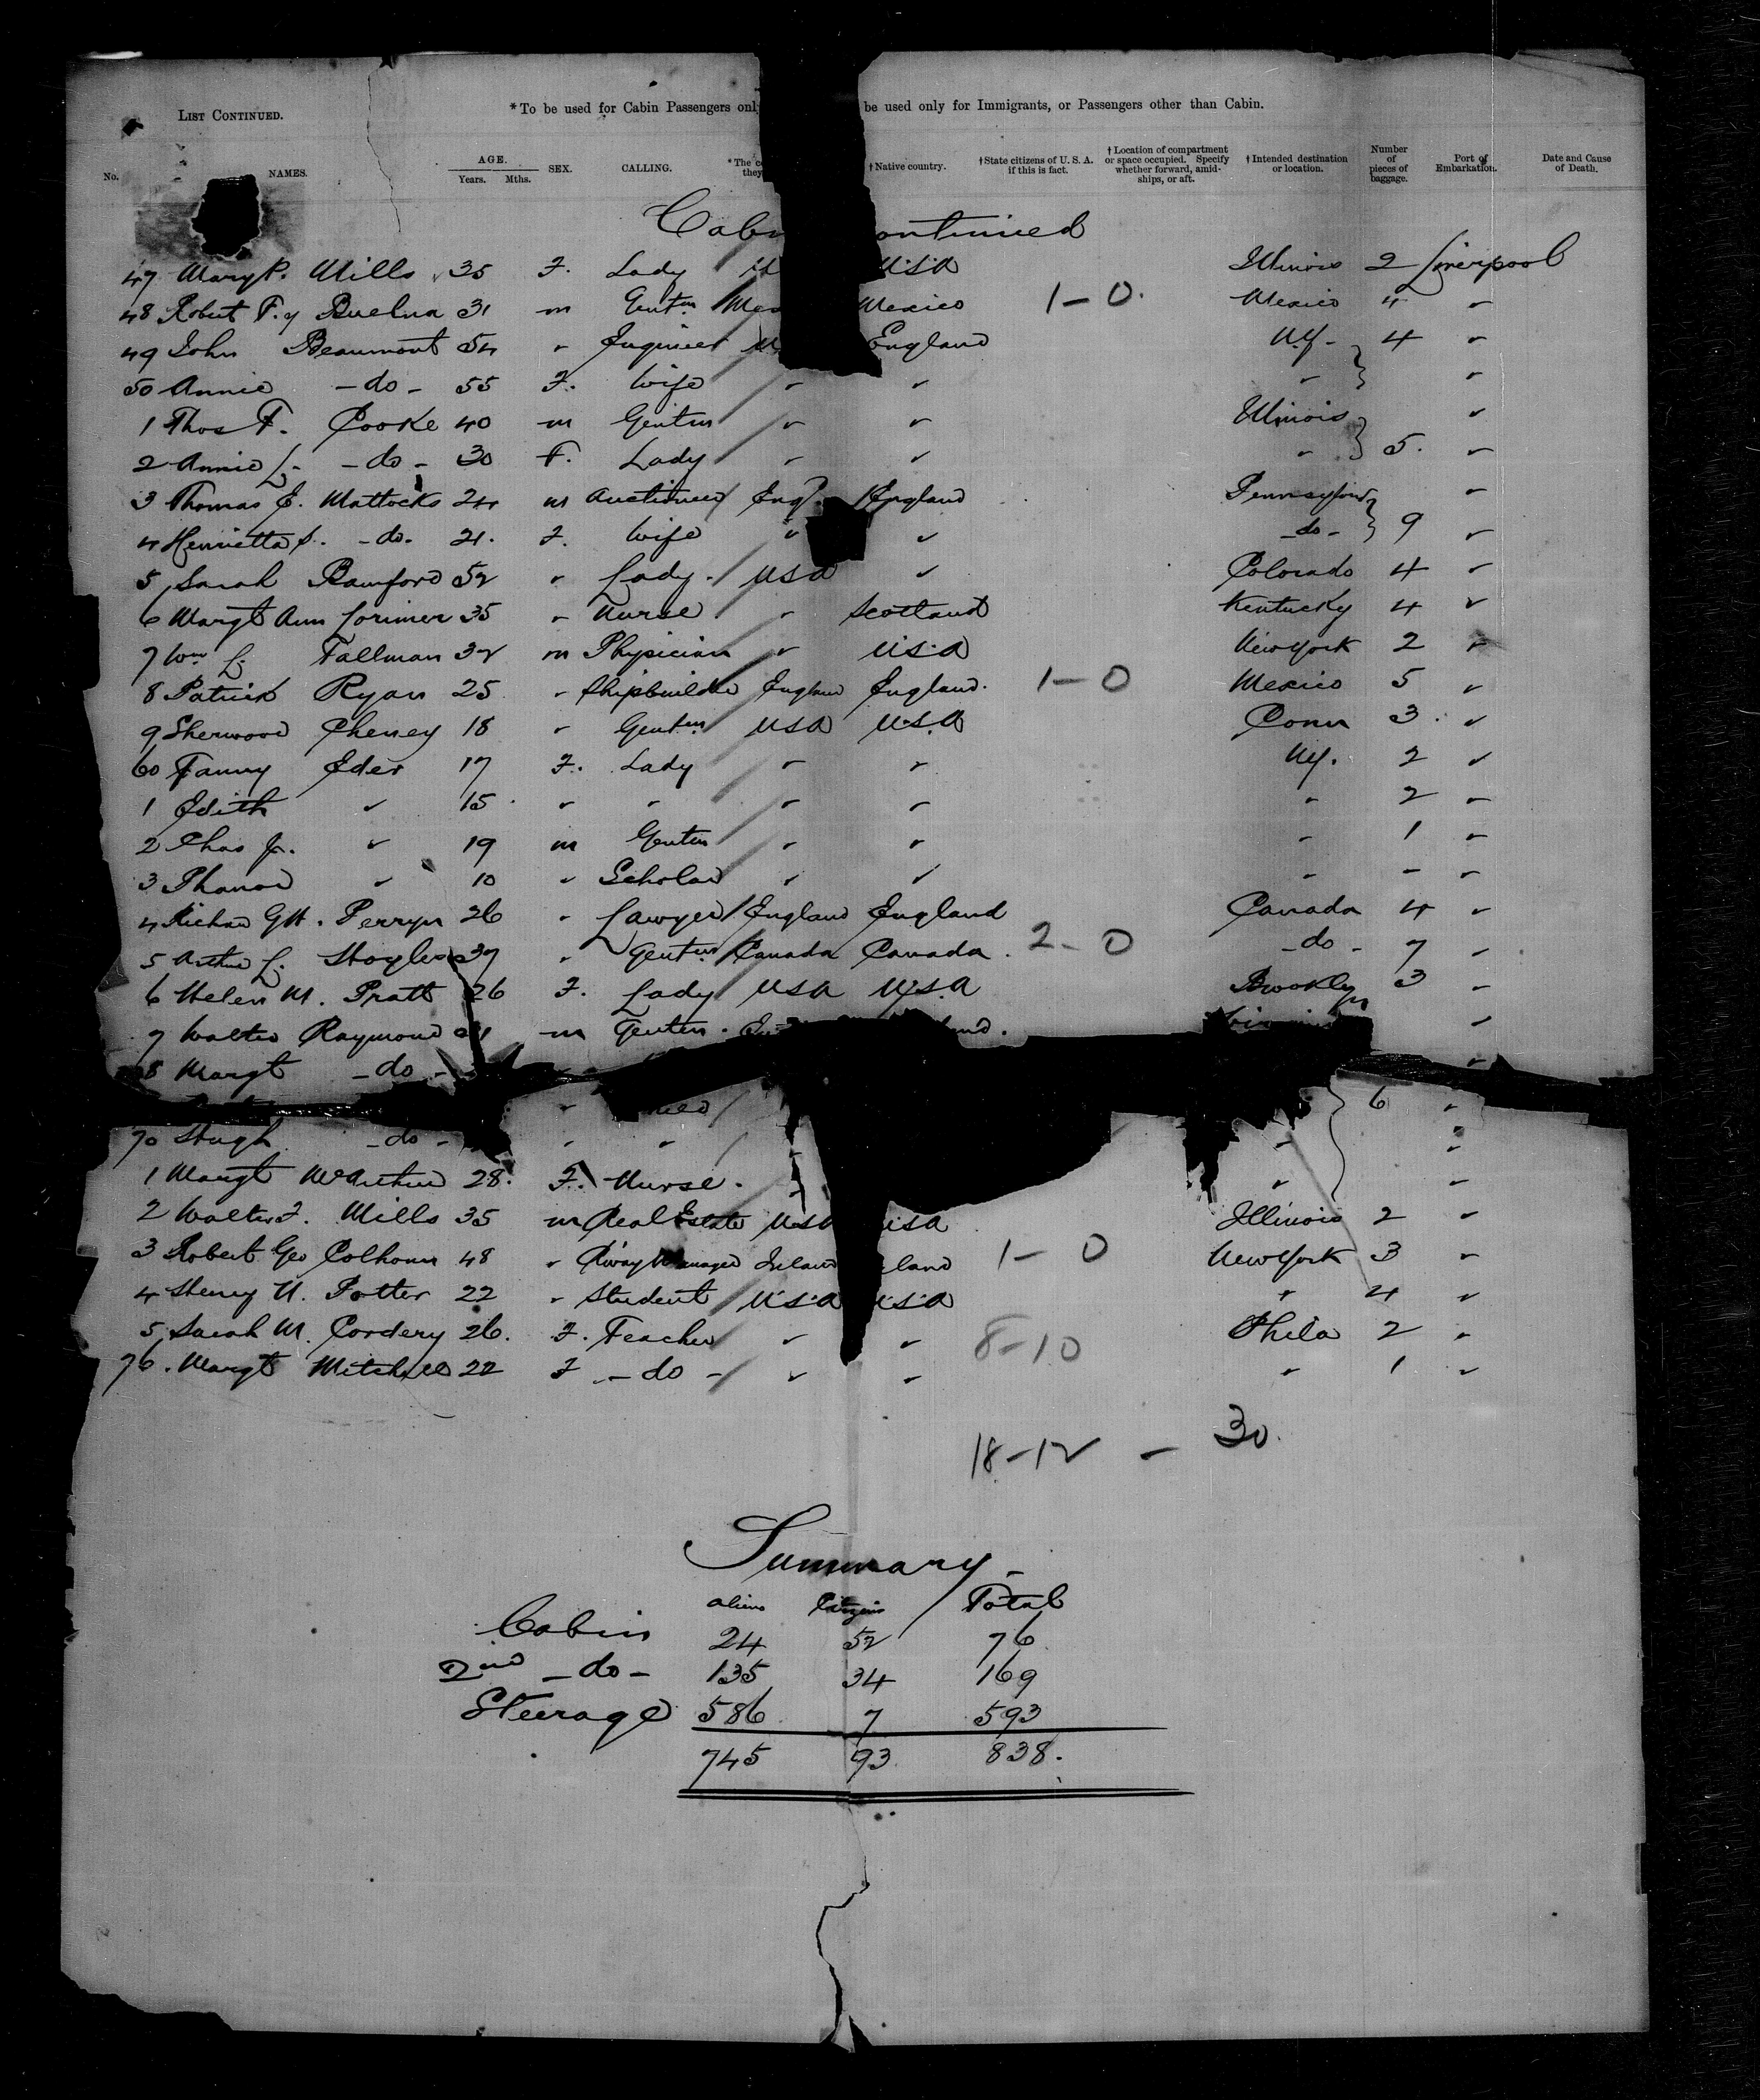 LIST CONTINUED.
*To be used for Cabin Passengers only be used only for Immigrants, or Passengers other than Cabin.
No. NAMES. AGE. Years. Mths. SEX. CALLING. *The they †Native country. †State citizens of U. S. A. if this is fact. †Location of compartment or space occupied. Specify whether forward, amidships, or aft. †Intended destination or location. Number of pieces of baggage. Port of Embarkation. Date and Cause of Death.
Cabin ontinued
47 Mary P. Mills 35 F. Lady USA Illinois 2 Liverpool
48 Robert F. y Buelna 31 m Gentn Mex Mexico 1-0. Mexico 4 "
49 John Beaumont 54 " Engineer England NY. 4 "
50 Annie -do- 55 F. Wife " " " "
1 Thos F. Cooke 40 m Gentm " " Illinois "
2 Annie L. -do- 30 F. Lady " " " 5. "
3 Thomas E. Mattocks 24 m Auctioneer Engd. England "
4 Henrietta S. -do- 21. F. Wife " " -do- 9 "
5 Sarah Bamford 52 " Lady. USA " Colorado 4 "
6 Margt Ann Lorimer 35 " Nurse " Scotland Kentucky 4 "
7 Wm L. Tallman 32 m Physician " USA New York 2 "
8 Patrick Ryan 25 " Shipbuilder England England. 1-0 Mexico 5 "
9 Sherwood Cheney 18 " Gentm USA USA Conn 3. "
60 Fanny Eder 17 F. Lady " " NY. 2 "
1 Edith " 15 " " " " " 2 "
2 Chas Jr. " 19 m Gentm " " " 1 "
3 " 10 " Scholar " " " - "
4 Richard GH. Perryn 26 " Lawyer England England Canada 4 "
5 Arthur L. 37 " Gentm Canada Canada. 2-0 -do- 7 "
6 Helen M. Pratt 26 F. Lady USA USA Brooklyn 3 "
7 Walter Raymond m Gentm. "
8 Margt -do- "
6 "
70 Hugh -do- " " " "
1 Margt McArthur 28. F. Nurse. " "
2 Walter F. Mills 35 m Real Estate USA USA Illinois 2 "
3 Robert Geo Colhoun 48 " Rway Manager Ireland land 1-0 New York 3 "
4 Henry N. Potter 22 " Student USA USA " 4 "
5 Sarah M. Cordery 26. F. Teacher " " 8-10 Phila 2 "
76. Margt Mitchell 22 F -do- " " " 1 "
18-12 - 30.
Summary
aliens Citizens Total
Cabin 24 52 76
2nd -do- 135 34 169
Steerage 586 7 593
745 93 838.